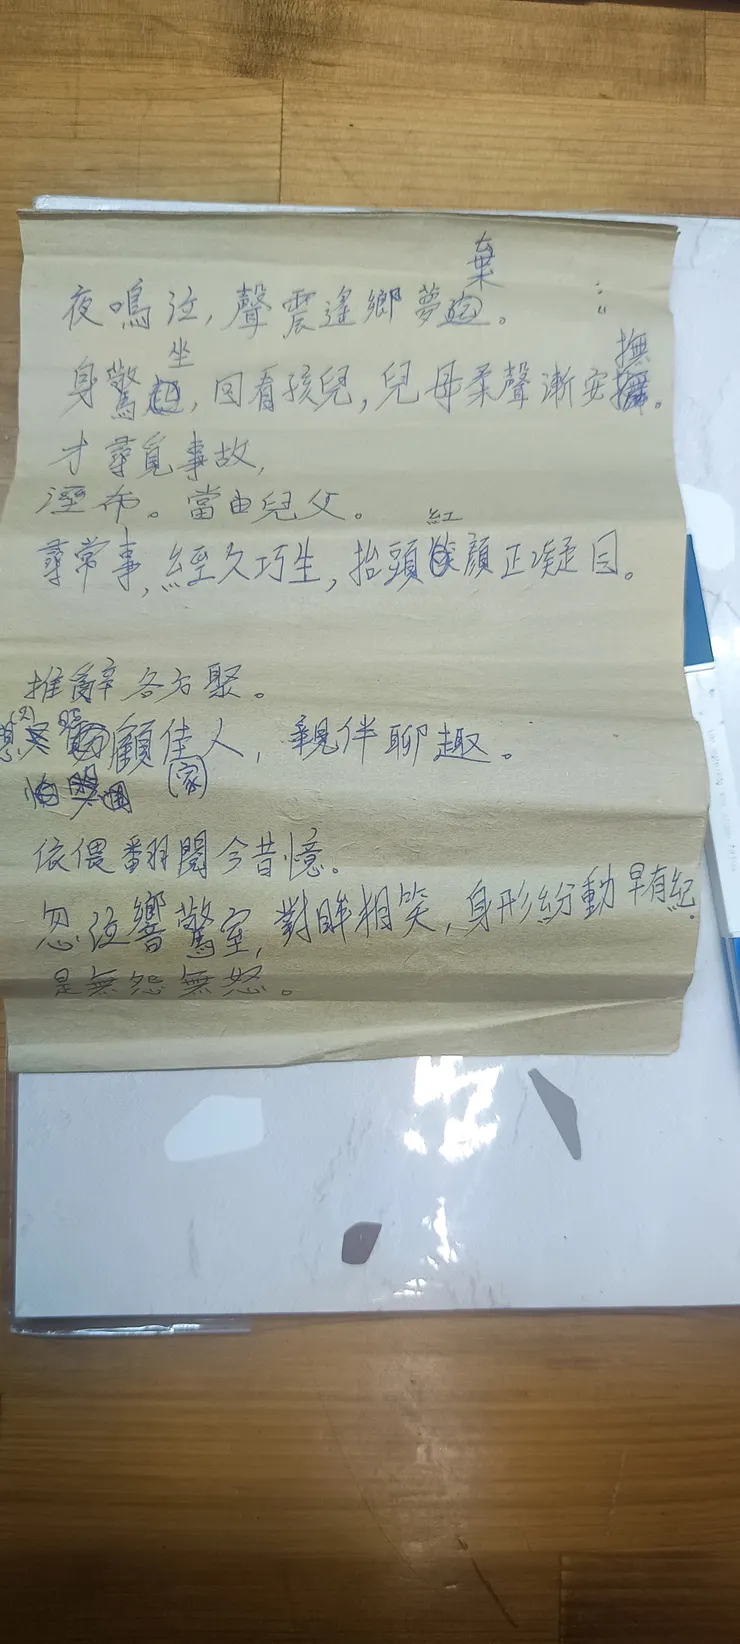 棄
夜鳴泣，聲震遙鄉夢。
坐 撫
身驚，回看孩兒，兒母柔聲漸安。
才尋覓事故，
溼布。當由兒父。
紅
尋常事，經久巧生，抬頭顏正凝目。
推辭各方聚。
顧佳人，親伴聊趣。
(家)
依偎翻閱今昔憶。
忽泣響驚室，對眸相笑，身形紛動早有紀.
是無怨無怒。